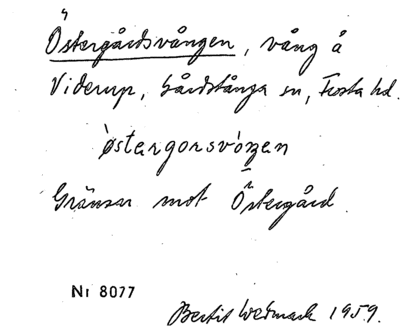 Östergårdsvången, vång å
Viderup, Gårdstånga sn, Frosta hd.
östergorsvoŋen
Gränsar mot Östergård.
Nr 8077
Bertil Wetmark 1959.